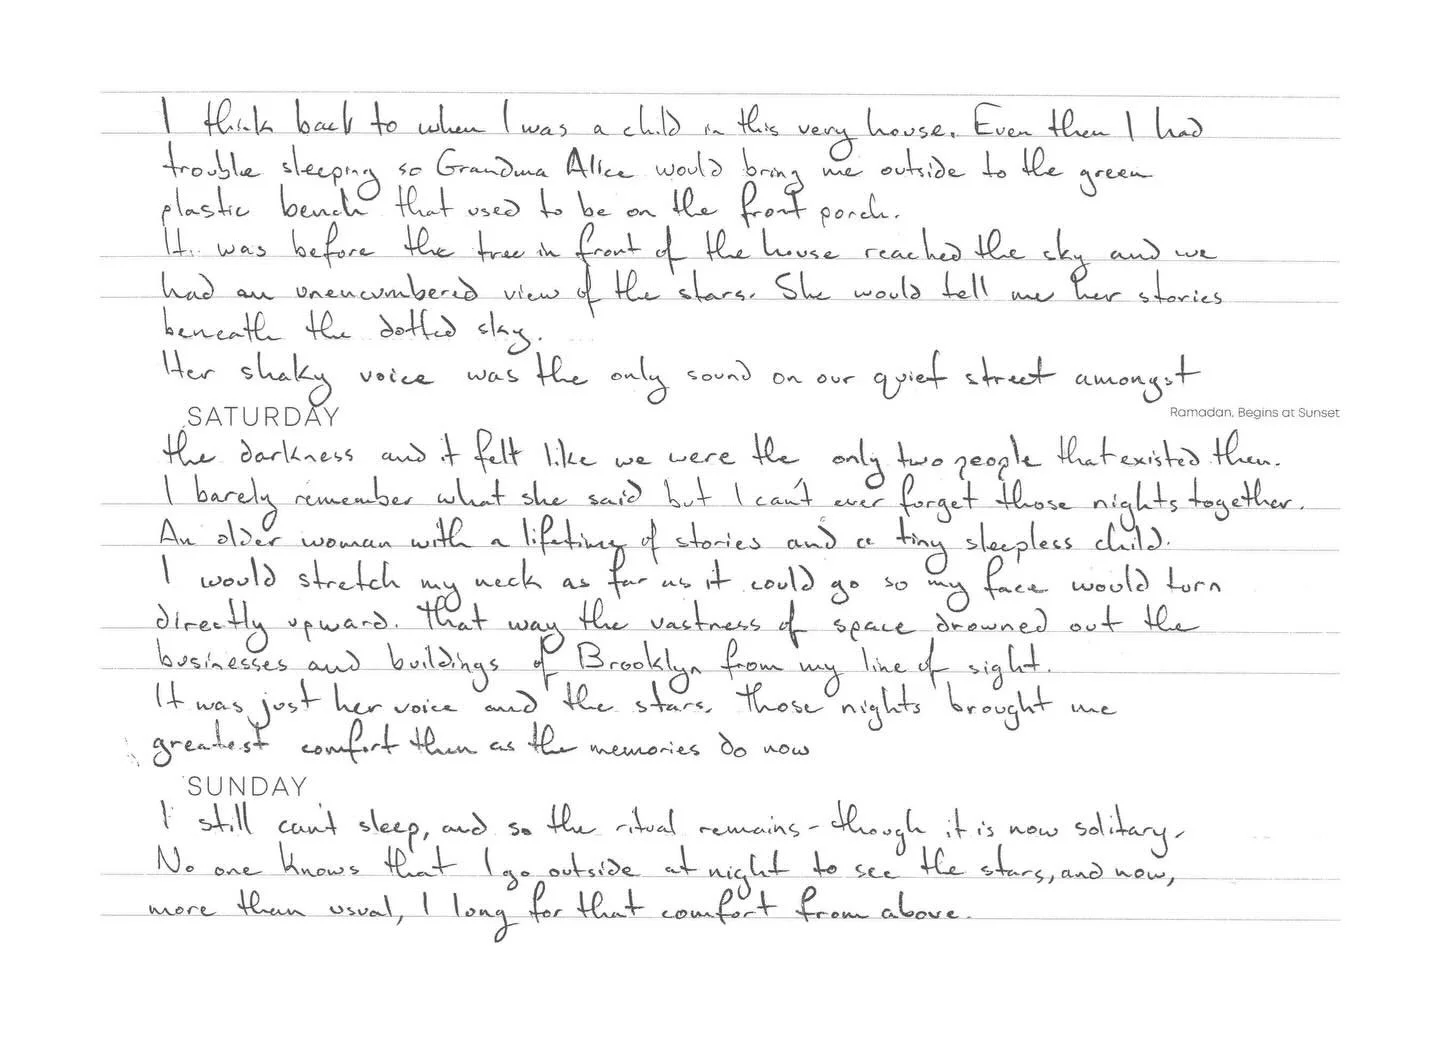 I think back to when I was a child in this very house. Even then I had
trouble sleeping so Grandma Alice would bring me outside to the green
plastic bench that used to be on the front porch.
It was before the tree in front of the house reached the sky and we
had an unencumbered view of the stars. She would tell me her stories
beneath the dotted sky.
Her shaky voice was the only sound on our quiet street amongst
SATURDAY
Ramadan, Begins at Sunset
the darkness and it felt like we were the only two people that existed then.
I barely remember what she said but I can't ever forget those nights together.
An older woman with a lifetime of stories and a tiny sleepless child.
I would stretch my neck as far as it could go so my face would turn
directly upward. That way the vastness of space drowned out the
businesses and buildings of Brooklyn from my line of sight.
It was just her voice and the stars. Those nights brought me
greatest comfort then as the memories do now
SUNDAY
I still can't sleep, and so the ritual remains - though it is now solitary.
No one knows that I go outside at night to see the stars, and now,
more than usual, I long for that comfort from above.